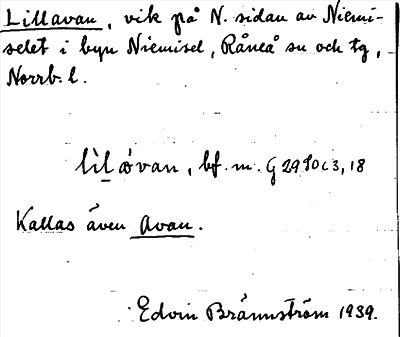 Lillavan, vik på N. sidan av Niemi-
selet i byn Niemisel, Råneå sn och tg,
Norrb. l.
bf. m. G 2990 c 3, 18
Kallas även Avan.
Edvin Brännström 1939.